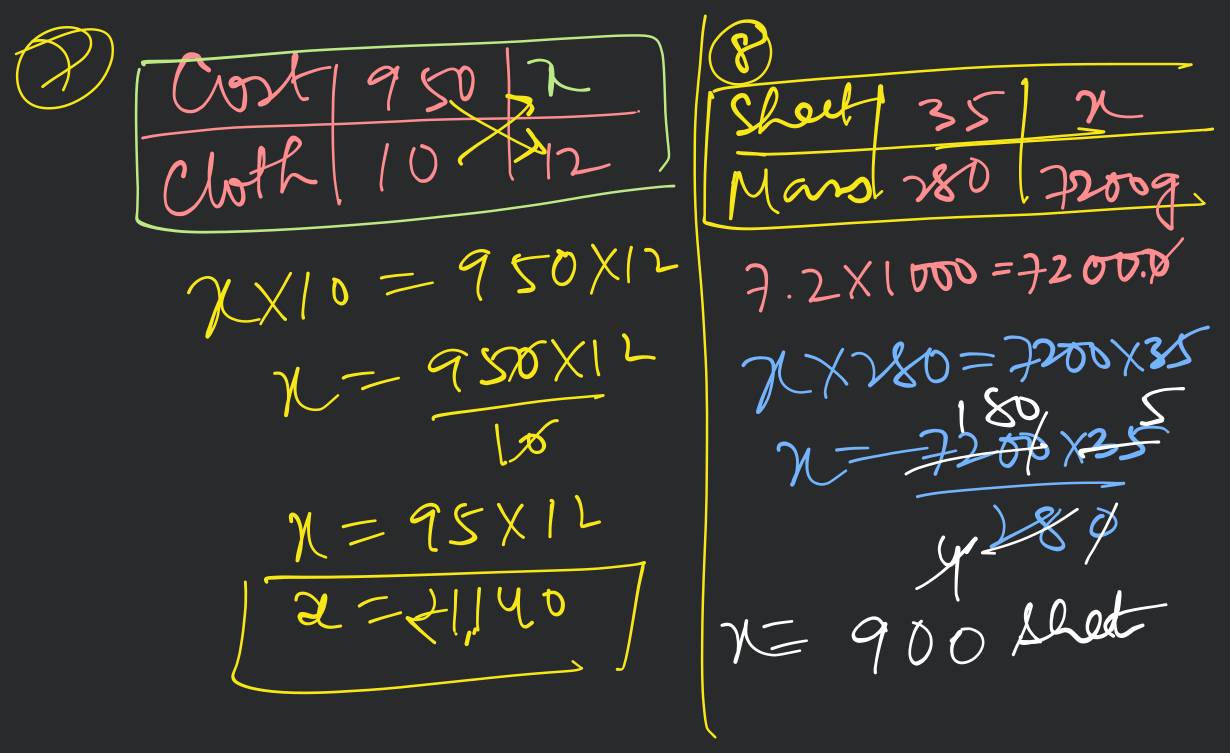 7
Cost | 950 | x
Cloth | 10 | 12
x×10 = 950×12
x = 950×12
10
x = 95×12
x = ₹1,140
8
Sheet | 35 | x
Mass | 280 | 7200g
7.2×1000 = 7200.0
x×280 = 7200×35
180 5
x = 7200×35
280
4
x = 900 sheet